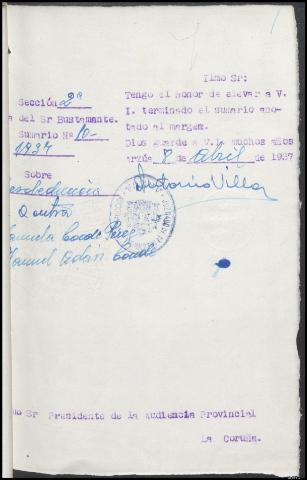 Ilmo Sr:
Tengo el honor de elevar a V.
I. terminado el sumario ano-
tado al margen.
Dios guarde a V.I. muchos años
8 de Abril de 1937
Antonio Villar
Sección 2ª
del Sr Bustamante.
Sumario Nº 10-
1937
Sobre
desobediencia
Contra
Manuela Conde Pérez
Manuel Adán Conde
Sr Presidente de la Audiencia Provincial
La Coruña.